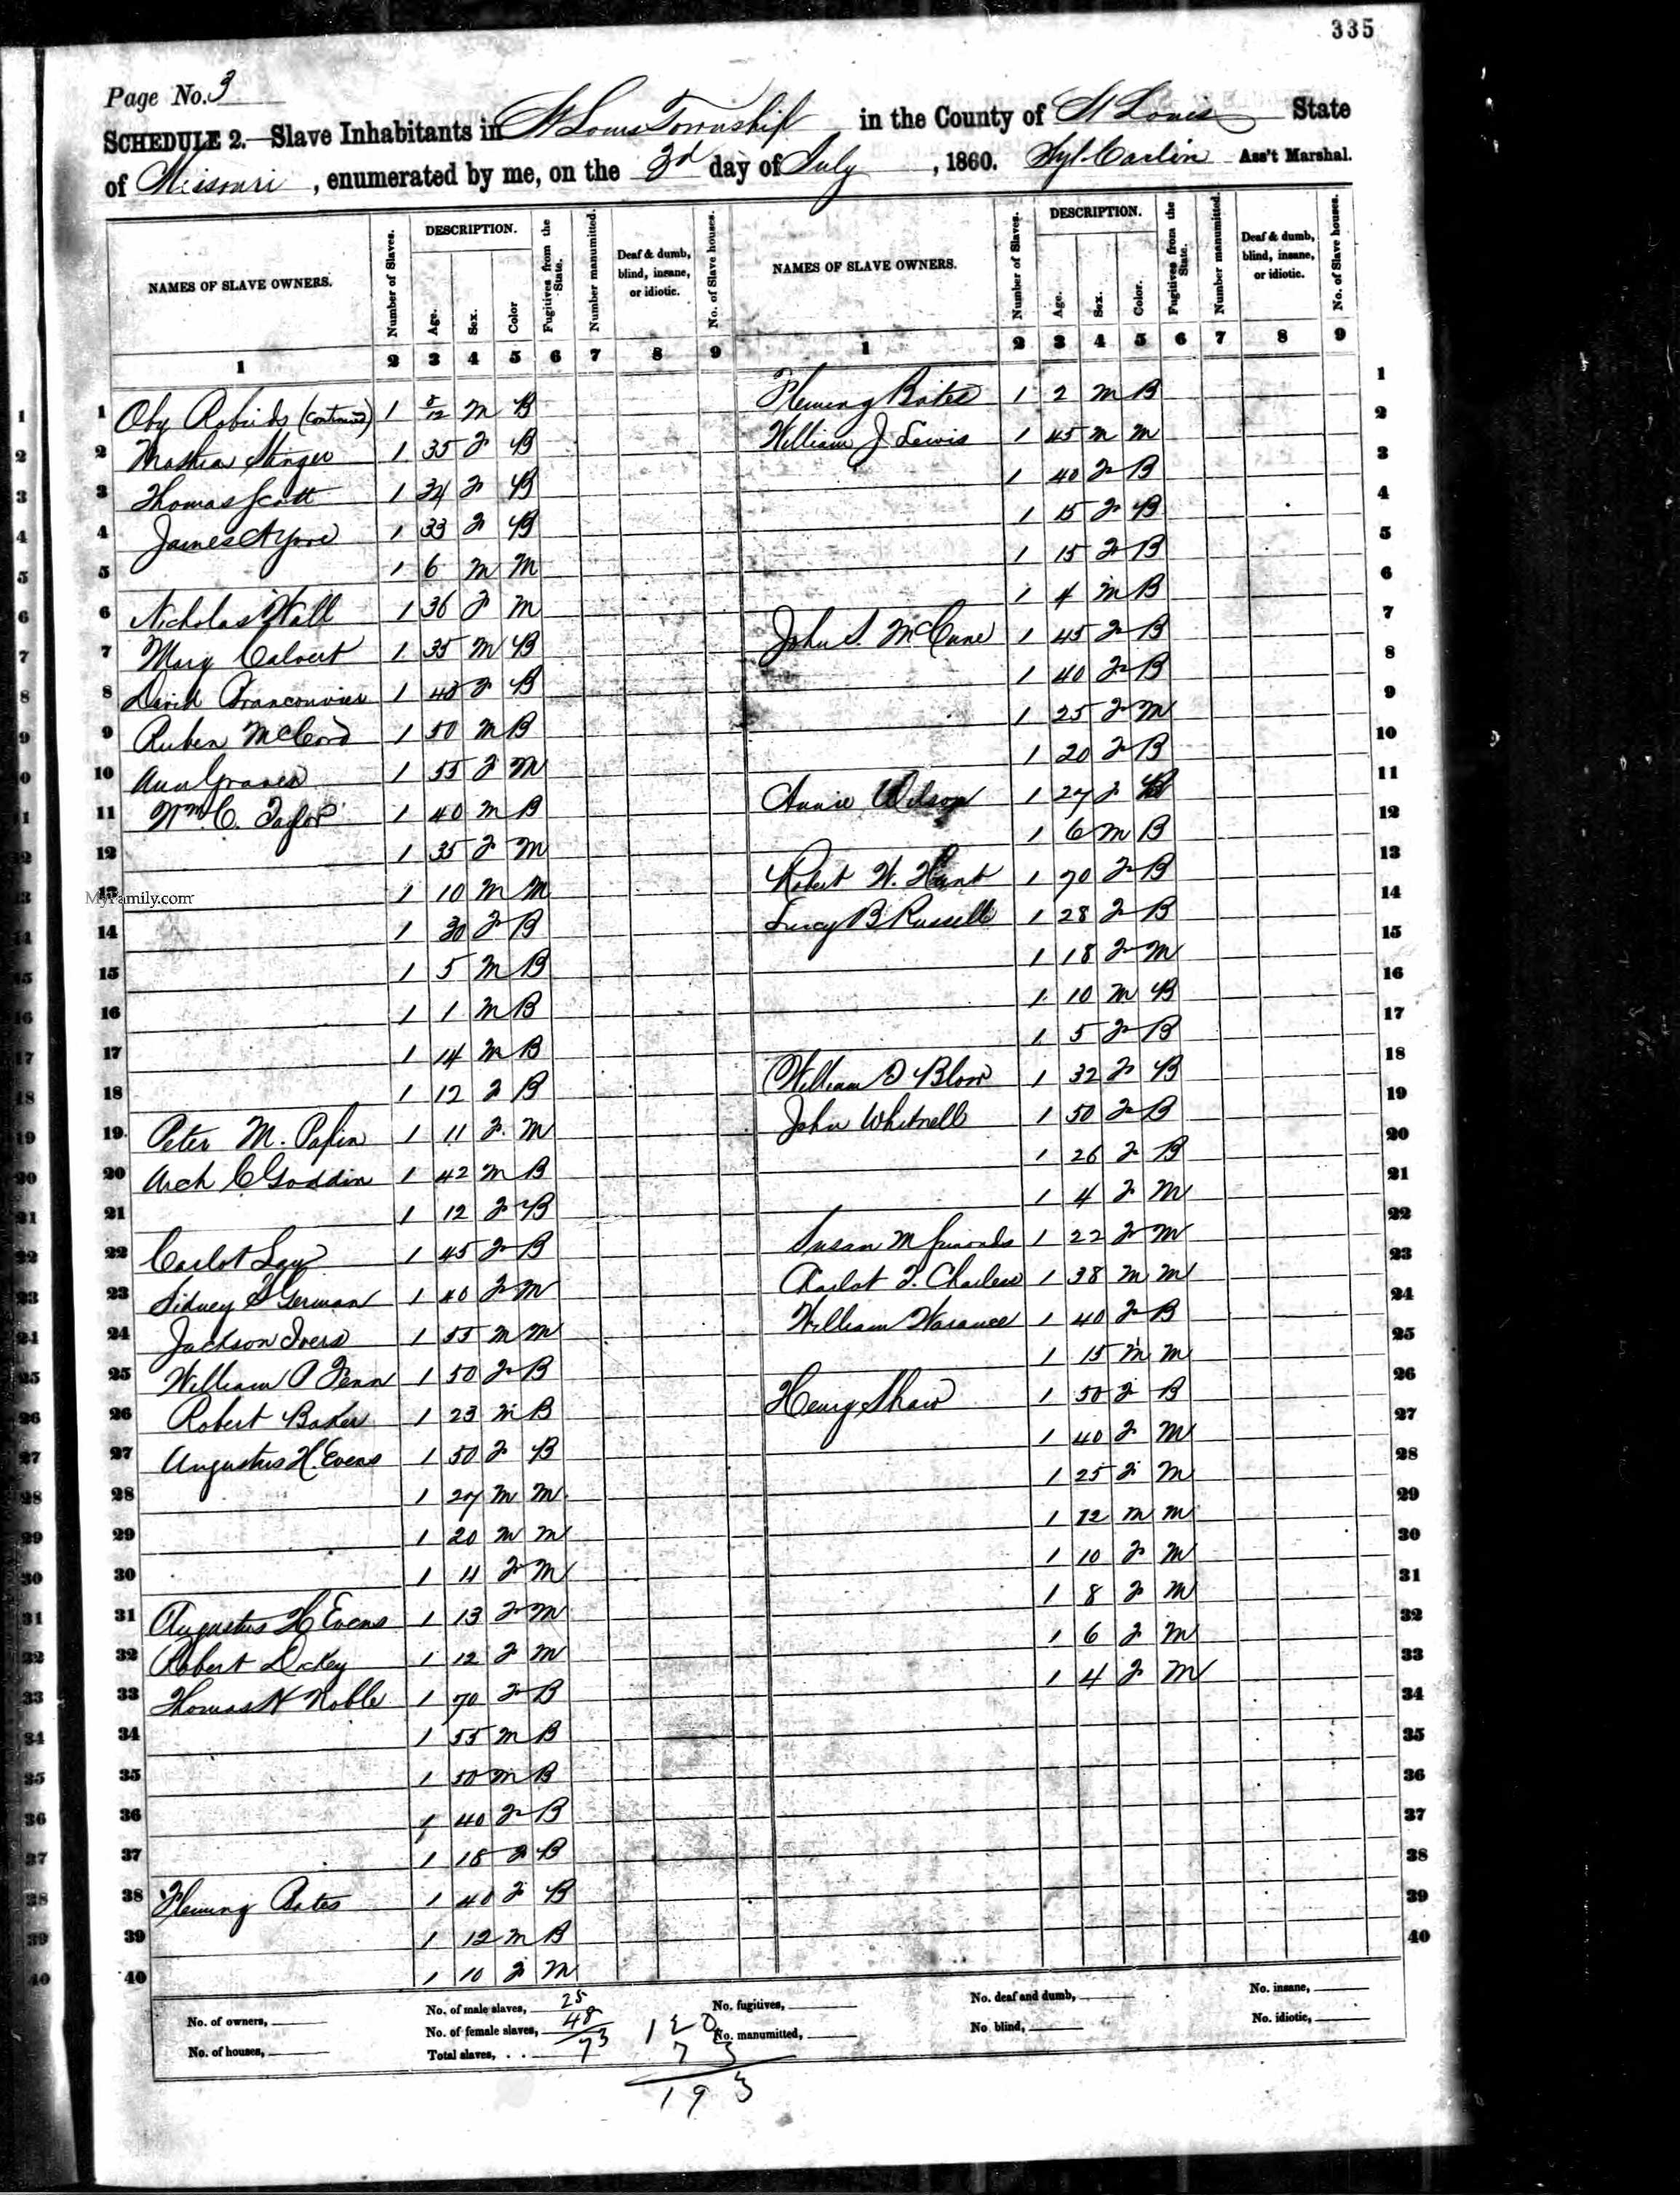 335
Page No. 3
SCHEDULE 2.—Slave Inhabitants in St Louis Township in the County of St Louis State
of Missouri, enumerated by me, on the 3d day of July, 1860. Syl Carlin Ass't Marshal.
NAMES OF SLAVE OWNERS. Number of Slaves. DESCRIPTION. Age. Sex. Color Fugitives from the State. Number manumitted. Deaf & dumb, blind, insane, or idiotic. No. of Slave houses.
1 2 3 4 5 6 7 8 9
1 (Continued) 1 m B
2 1 35 F B
3 Thomas Scott 1 F B
4 James A 1 33 F B
5 1 6 m m
6 Nicholas Wall 1 36 F m
7 Mary Calvert 1 35 m B
8 David 1 F B
9 Ruben McCord 1 50 m B
10 Ann Graves 1 55 F m
11 Wm. C. Taylor 1 40 m B
12 1 35 F m
13 1 10 m m
MyFamily.com
14 1 30 F B
15 1 5 m B
16 1 1 m B
17 1 14 m B
18 1 12 F B
19 Peter M. Papin 1 11 F m
20 Arch C Goddin 1 42 m B
21 1 12 F B
22 Carlot 1 45 F B
23 Sidney German 1 40 F m
24 Jackson Ivers 1 55 m m
25 William P Fenn 1 50 F B
26 Robert Baker 1 23 m B
27 Augustus H. Evens 1 50 F B
28 1 27 m m
29 1 20 m m
30 1 11 F m
31 Augustus H Evens 1 13 F m
32 Robert Dickey 1 12 F m
33 Thomas H Noble 1 70 F B
34 1 55 m B
35 1 50 m B
36 1 40 F B
37 1 18 F B
38 Fleming Bates 1 40 F B
39 1 12 m B
40 1 10 F m
NAMES OF SLAVE OWNERS. Number of Slaves. DESCRIPTION. Age. Sex. Color. Fugitives from the State. Number manumitted. Deaf & dumb, blind, insane, or idiotic. No. of Slave houses.
1 2 3 4 5 6 7 8 9
Fleming Bates 1 2 m B 1
William J Lewis 1 45 m m 2
1 40 F B 3
1 15 F B 4
1 15 F B 5
1 4 m B 6
John S. McCune 1 45 F B 7
1 40 F B 8
1 25 F m 9
1 20 F B 10
Annie Wilson 1 27 F B 11
1 6 m B 12
Robert W. Hunt 1 70 F B 13
Lucy B Russell 1 28 F B 14
1 18 F m 15
1 10 m B 16
1 5 F B 17
William Blow 1 32 F B 18
John Whitnell 1 50 F B 19
1 26 F B 20
1 4 F m 21
Susan M 1 22 F m 22
Charlot F. Charless 1 38 m m 23
William 1 40 F B 24
1 15 m m 25
Henry Shaw 1 50 F B 26
1 40 F m 27
1 25 F m 28
1 12 m m 29
1 10 F m 30
1 8 F m 31
1 6 F m 32
1 4 F m 33
34
35
36
37
38
39
40
No. of owners,
No. of houses,
No. of male slaves, 25
No. of female slaves, 48
Total slaves, . . 73
120
73
193
No. fugitives,
No. manumitted,
No. deaf and dumb,
No blind,
No. insane,
No. idiotic,